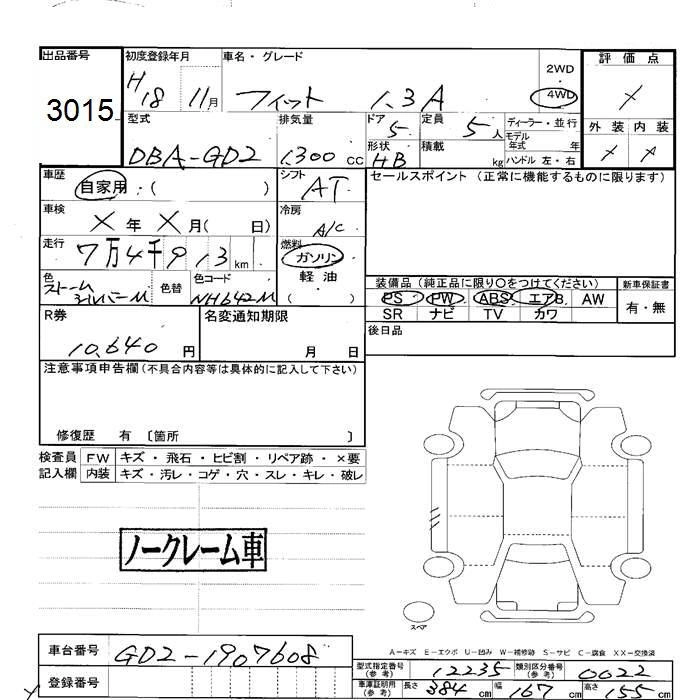 出品番号
3015
初度登録年月
H18 11月
車名・グレード
フィット 1.3A
2WD
・
4WD
評価点
外装 内装
型式
DBA-GD2
排気量
1300 CC
ドア
5
形状
HB
定員
5人
積載
kg
ディーラー・並行
モデル
年式 年
ハンドル 左・右
車歴
自家用:( )
シフト
AT
セールスポイント (正常に機能するものに限ります)
車検
X年X月( 日)
冷房
A/C
走行
7万4千913 km
燃料
ガソリン
軽油
( )
色
ストームシルバーM
色替
色コード
NH642M
装備品(純正品に限り〇をつけてください)
PS PW ABS エアB. AW
SR ナビ TV カワ
新車保証書
有・無
R券
10,640 円
名変通知期限
月 日
後日品
注意事項申告欄(不具合内容等は具体的に記入して下さい)
修復歴 有 〔箇所 〕
検査員
記入欄
FW キズ・飛石・ヒビ割・リペア跡・×要
内装 キズ・汚レ・コゲ・穴・スレ・キレ・破レ
ノークレーム車
スペア
A－キズ E－エクボ U－凹み W－補修跡 S－サビ C－腐食 XX－交換済
車台番号
GD2-1907608
登録番号
型式指定番号
(参考)
12235
類別区分番号
(参考)
0022
車庫証明用
(参考)
長さ 384 cm 幅 167 cm 高さ 155 cm